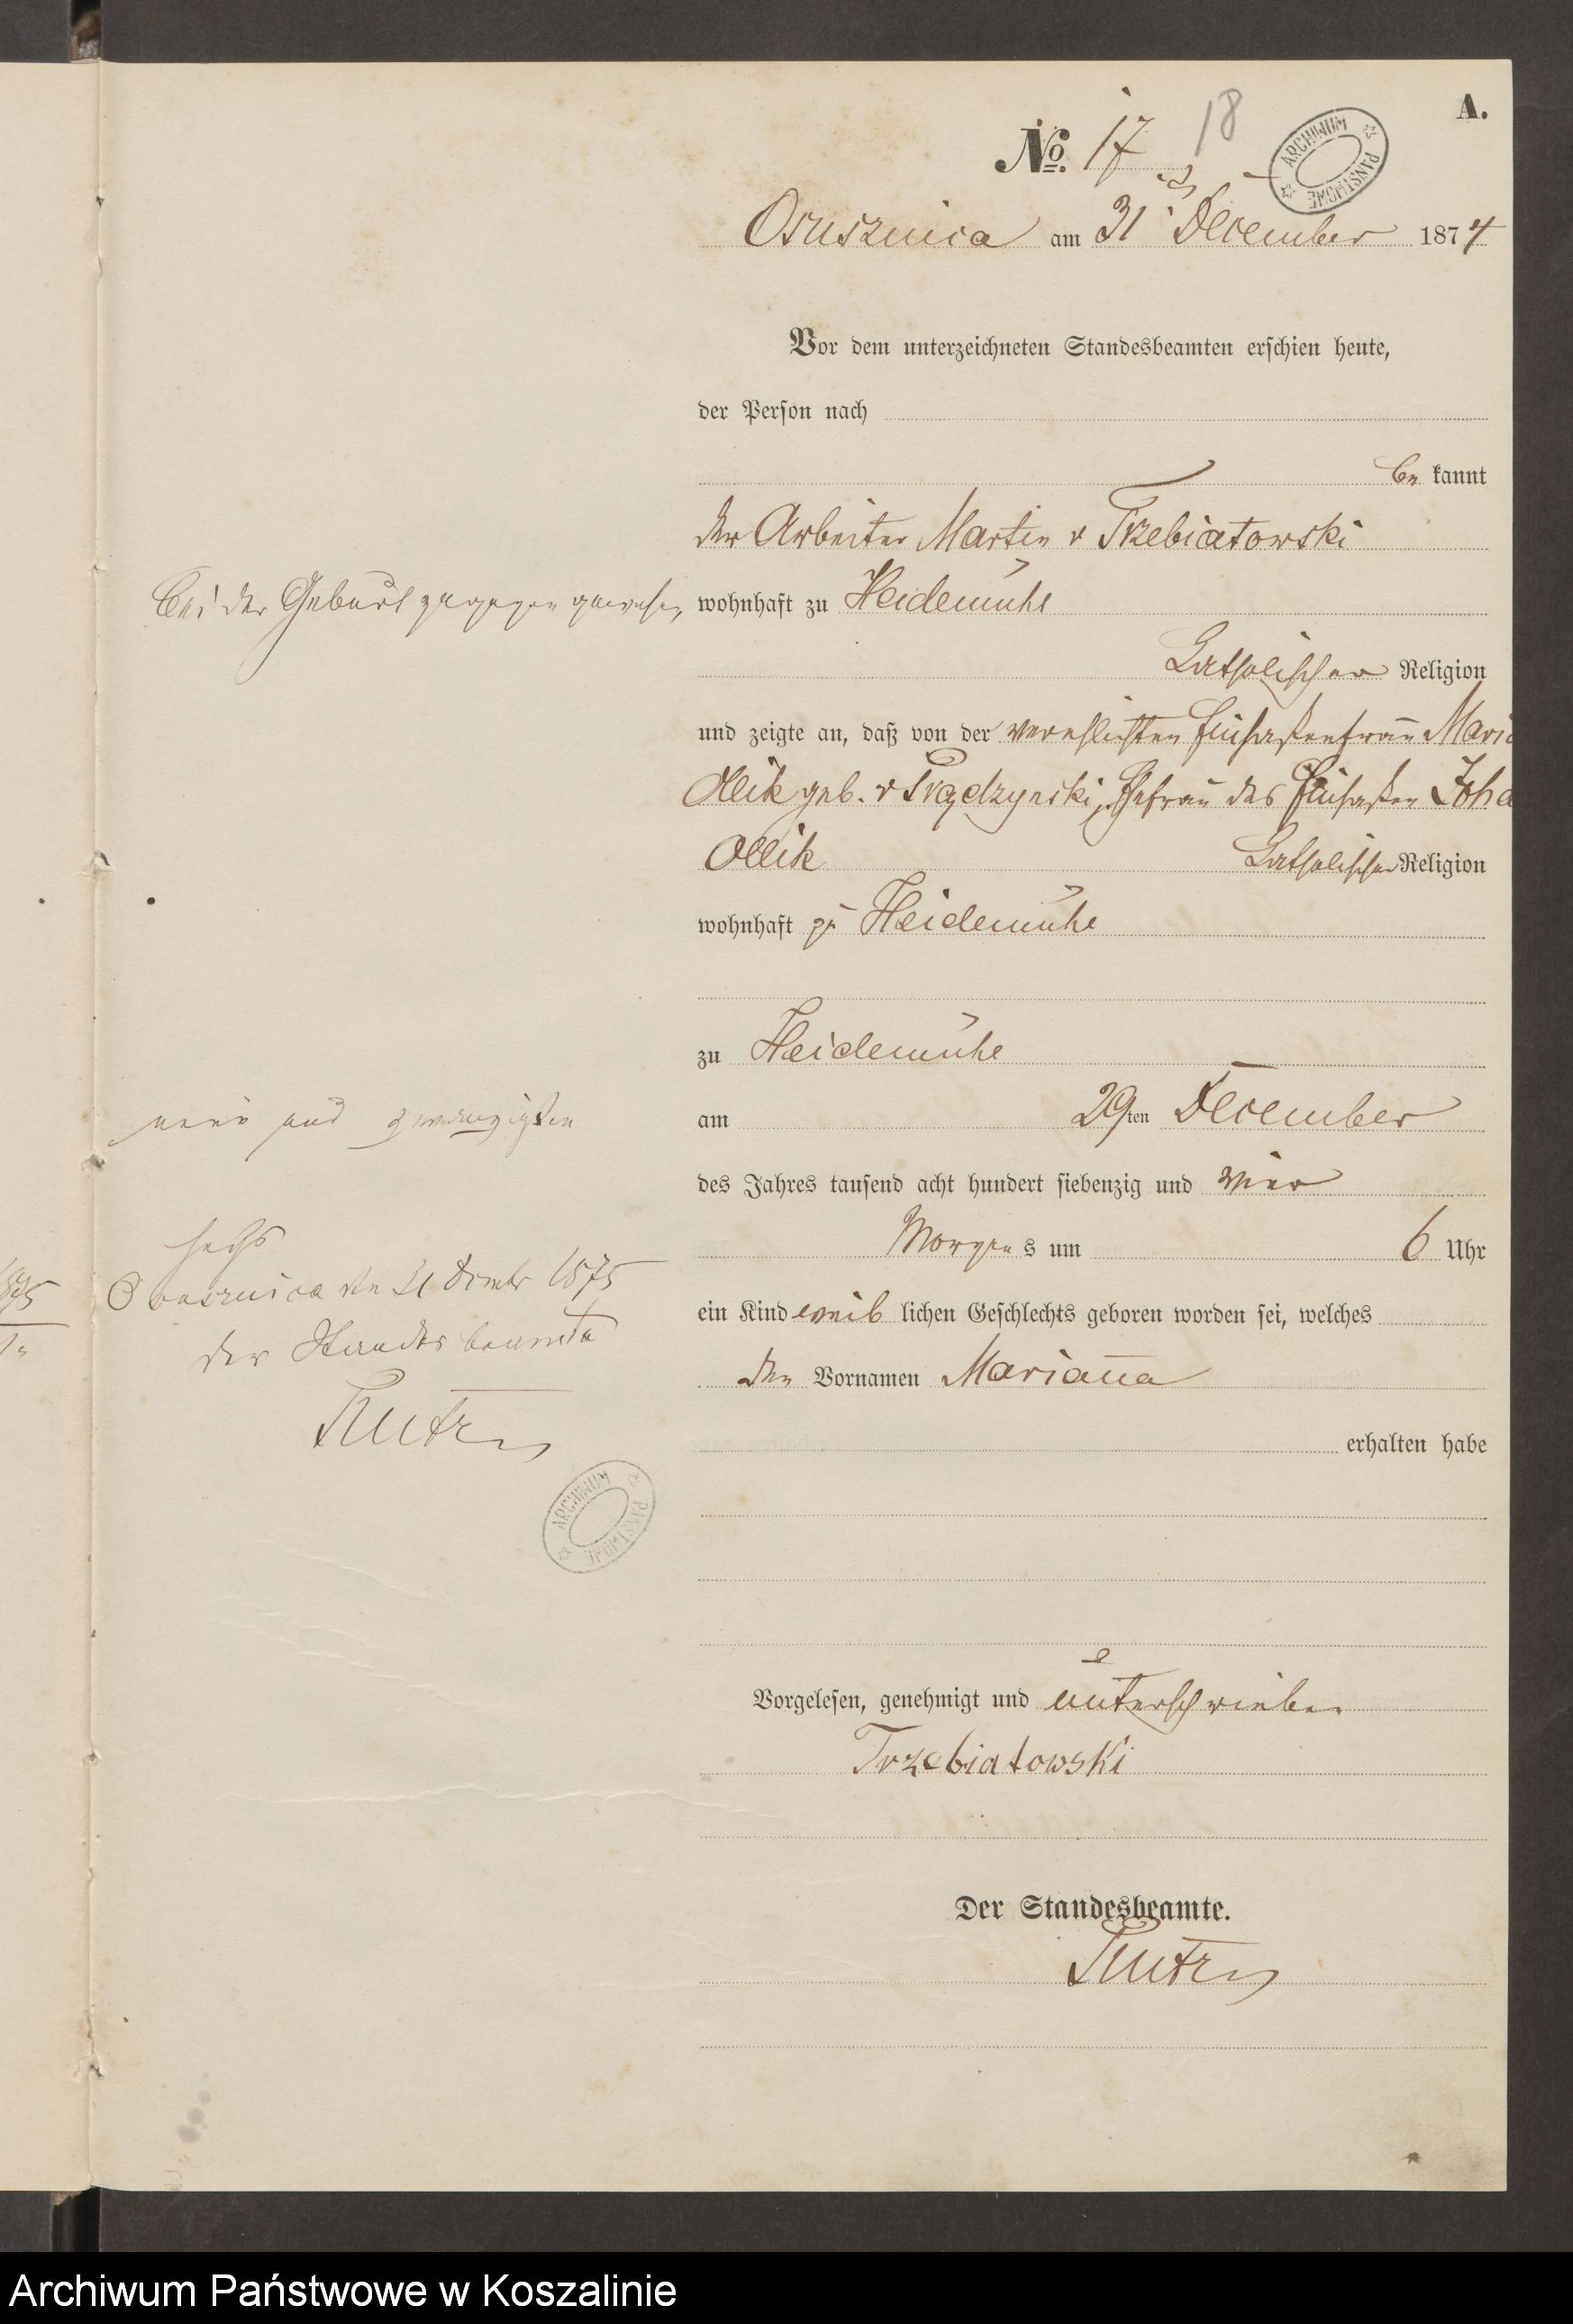 A.
No. 17
18
ARCHIWUM PAŃSTWOWE
Osusznica am 31 December 1874
Vor dem unterzeichneten Standesbeamten erschien heute,
der Person nach
be kannt
der Arbeiter Martin v Trzebiatowski
bei der Geburt zugegen gewesen
wohnhaft zu Heidemühl
Katholischer Religion
und zeigte an, daß von der verehlichten Einsaßenfrau Maria
Ollik geb. v Prądzynski, Ehefrau des Einsaßen Joha
Ollik Katholischer Religion
wohnhaft zu Heidemühle
zu Heidemühle
neun und zwanzigsten
am 29ten December
des Jahres tausend acht hundert siebenzig und vier
sechs
Morgens um 6 Uhr
Osusznica den 31 Dezmbr 1875
der Standesbeamte
ein Kind weib lichen Geschlechts geboren worden sei, welches
den Vornamen Marianna
erhalten habe
ARCHIWUM PAŃSTWOWE
Vorgelesen, genehmigt und unterschrieben
Trzebiatowski
Der Standesbeamte.
Archiwum Państwowe w Koszalinie